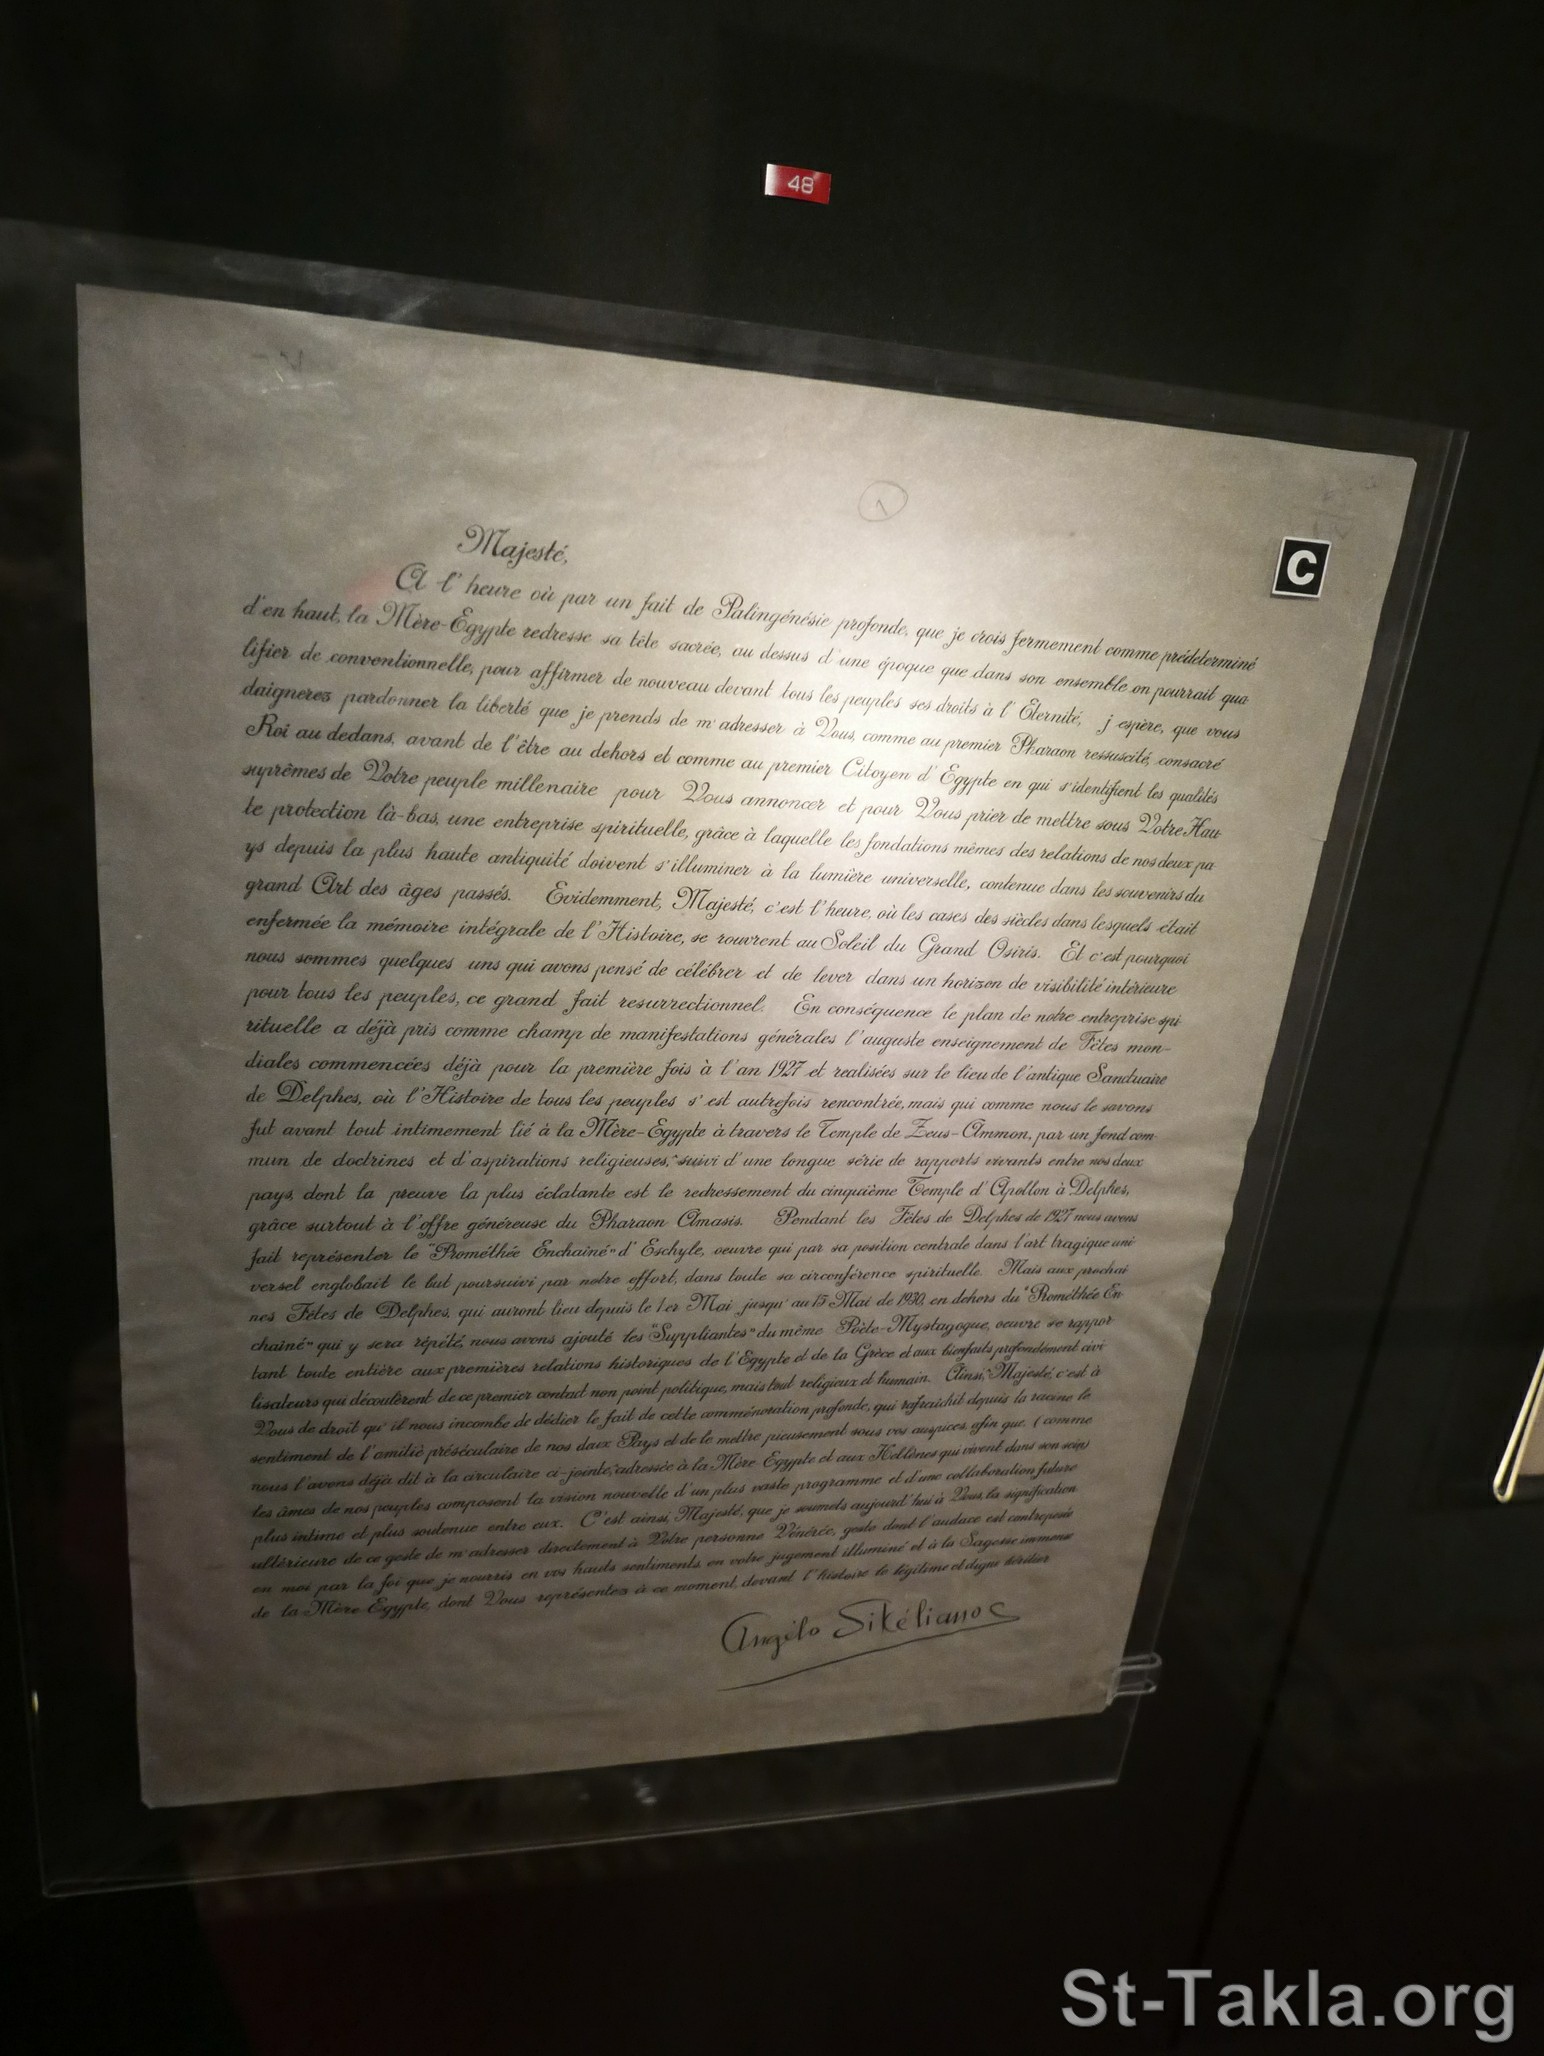 48
1
C
Majesté,
A l'heure où par un fait de Palingénésie profonde, que je crois fermement comme prédeterminé
d'en haut, la Mère-Egypte redresse sa tête sacrée, au dessus d'une époque que dans son ensemble on pourrait qua
lifier de conventionnelle, pour affirmer de nouveau devant tous les peuples ses droits à l'Eternité, j'espère, que vous
daignerez pardonner la liberté que je prends de m'adresser à Vous, comme au premier Pharaon ressuscité, consacré
Roi au dedans, avant de l'être au dehors et comme au premier Citoyen d'Egypte en qui s'identifient les qualités
suprêmes de Votre peuple millenaire pour Vous annoncer et pour Vous prier de mettre sous Votre Hau-
te protection là-bas, une entreprise spirituelle, grâce à laquelle les fondations mêmes des relations de nos deux pa
ys depuis la plus haute antiquité doivent s'illuminer à la lumière universelle, contenue dans les souvenirs du
grand Art des âges passés. Evidemment, Majesté, c'est l'heure, où les cases des siècles dans lesquels était
enfermée la mémoire intégrale de l'Histoire, se rouvrent au Soleil du Grand Osiris. Et c'est pourquoi
nous sommes quelques uns qui avons pensé de célébrer et de lever dans un horizon de visibilité intérieure
pour tous les peuples, ce grand fait resurrectionnel. En conséquence le plan de notre entreprise spi-
rituelle a déjà pris comme champ de manifestations générales l'auguste enseignement de Fêtes mon-
diales commencées déjà pour la première fois à l'an 1927 et realisées sur le lieu de l'antique Sanctuaire
de Delphes, où l'Histoire de tous les peuples s'est autrefois rencontrée, mais qui comme nous le savons
fut avant tout intimement lié à la Mère-Egypte à travers le Temple de Zeus-Ammon, par un fond com-
mun de doctrines et d'aspirations religieuses, suivi d'une longue série de rapports vivants entre nos deux
pays, dont la preuve la plus éclatante est le redressement du cinquième Temple d'Apollon à Delphes,
grâce surtout à l'offre généreuse du Pharaon Amasis. Pendant les Fêtes de Delphes de 1927 nous avons
fait représenter le "Prométhée Enchaîné" d'Eschyle, oeuvre qui par sa position centrale dans l'art tragique uni
versel englobait le but poursuivi par notre effort, dans toute sa circonférence spirituelle. Mais aux prochai
nes Fêtes de Delphes, qui auront lieu depuis le 1er Mai jusqu'au 15 Mai de 1930, en dehors du "Prométhée En-
chaîné" qui y sera répété, nous avons ajouté les "Suppliantes" du même Poète-Mystagogue, oeuvre se rappor
tant toute entière aux premières relations historiques de l'Egypte et de la Grèce et aux bienfaits profondément civi
lisateurs qui découlèrent de ce premier contact non point politique, mais tout religieux et humain. Ainsi, Majesté, c'est à
Vous de droit qu'il nous incombe de dédier le fait de cette commémoration profonde, qui rafraîchit depuis la racine le
sentiment de l'amitié préséculaire de nos deux Pays et de le mettre pieusement sous vos auspices, afin que (comme
nous l'avons déjà dit à la circulaire ci-jointe, adressée à la Mère Egypte et aux Hellènes qui vivent dans son sein)
les âmes de nos peuples composent la vision nouvelle d'un plus vaste programme et d'une collaboration future
plus intime et plus soutenue entre eux. C'est ainsi, Majesté, que je soumets aujourd'hui à Vous, la signification
ultérieure de ce geste de m'adresser directement à Votre personne Vénérée, geste dont l'audace est contrepesée
en moi par la foi que je nourris en vos hauts sentiments, en votre jugement illuminé et à la Sagesse immense
de la Mère Egypte, dont Vous représentez à ce moment, devant l'histoire le légitime et digne héritier
Angélo Sikélianos
St-Takla.org